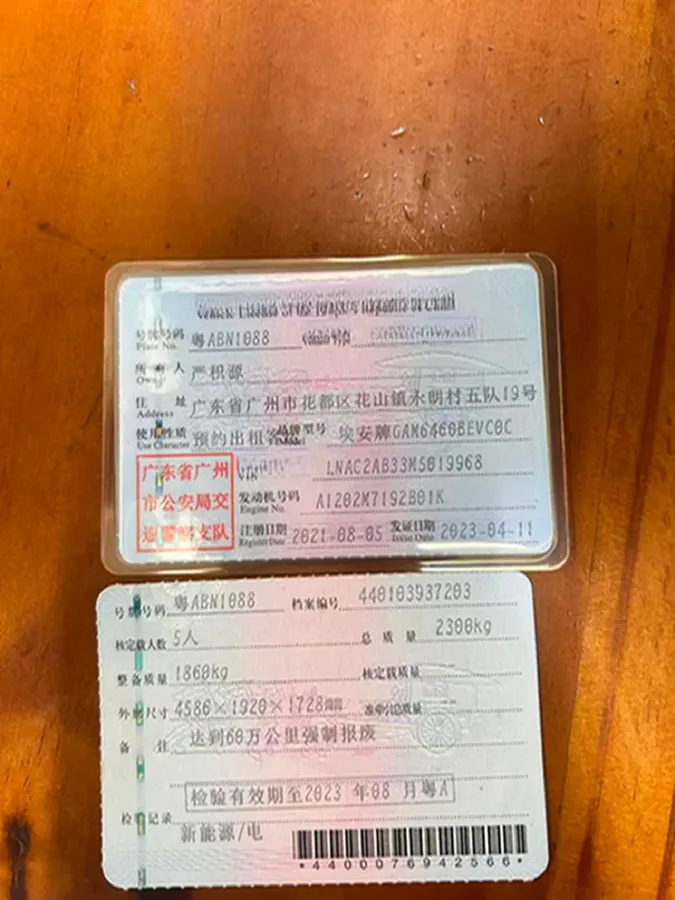 号牌号码 粤ABN1088
Plate No.
所有人 严积源
Owner
住 址 广东省广州市花都区花山镇永明村五队19号
Address
使用性质 预约出租客 品牌型号 埃安牌GAM6460BEVC0C
Use Character Model
VIN LNAC2AB33M5019968
广东省广州
市公安局交
通警察支队
发动机号码 A1202M7192B01K
Engine No.
注册日期 2021-08-05 发证日期 2023-04-11
Register Date Issue Date
号牌号码 粤ABN1088 档案编号 440103937203
核定载人数 5人 总质量 2300kg
整备质量 1860kg 核定载质量
外廓尺寸 4586×1920×1728mm 准牵引总质量
备 注 达到60万公里强制报废
检验有效期至2023 年08 月粤A
检验记录
新能源/电
*4400076942566*